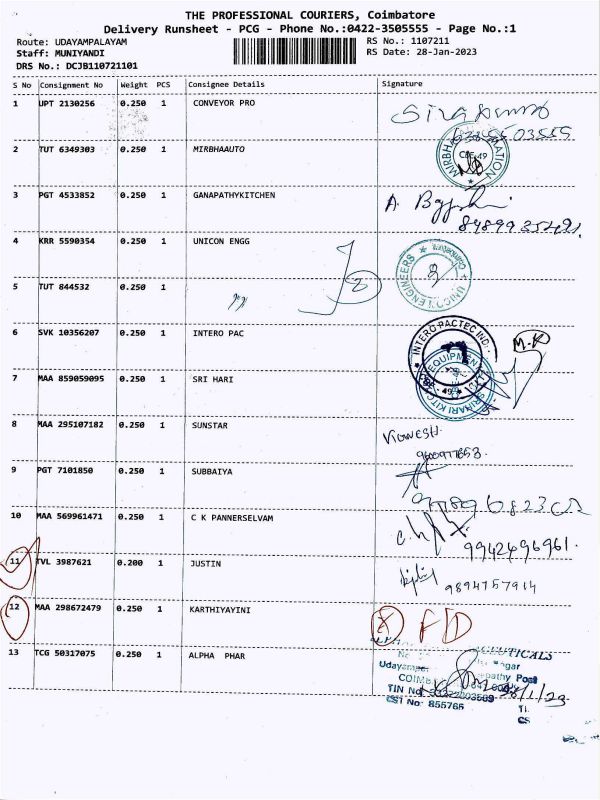 THE PROFESSIONAL COURIERS, Coimbatore
Delivery Runsheet - PCG - Phone No.:0422-3505555 - Page No.:1
Route: UDAYAMPALAYAM RS No.: 1107211
Staff: MUNIYANDI RS Date: 28-Jan-2023
DRS No.: DCJB110721101
S No Consignment No Weight PCS Consignee Details Signature
1 UPT 2130256 0.250 1 CONVEYOR PRO
2 TUT 6349303 0.250 1 MIRBHAAUTO
3 PGT 4533852 0.250 1 GANAPATHYKITCHEN
4 KRR 5590354 0.250 1 UNICON ENGG
5 TUT 844532 0.250 1
6 SVK 10356207 0.250 1 INTERO PAC INTERO PACTEC IND M.K
7 MAA 859059095 0.250 1 SRI HARI
8 MAA 295107182 0.250 1 SUNSTAR
9 PGT 7101850 0.250 1 SUBBAIYA
10 MAA 569961471 0.250 1 C K PANNERSELVAM 9942496961.
11 TVL 3987621 0.200 1 JUSTIN 9894757914
12 MAA 298672479 0.250 1 KARTHIYAYINI FD
13 TCG 50317075 0.250 1 ALPHA PHAR
CST No: 855765